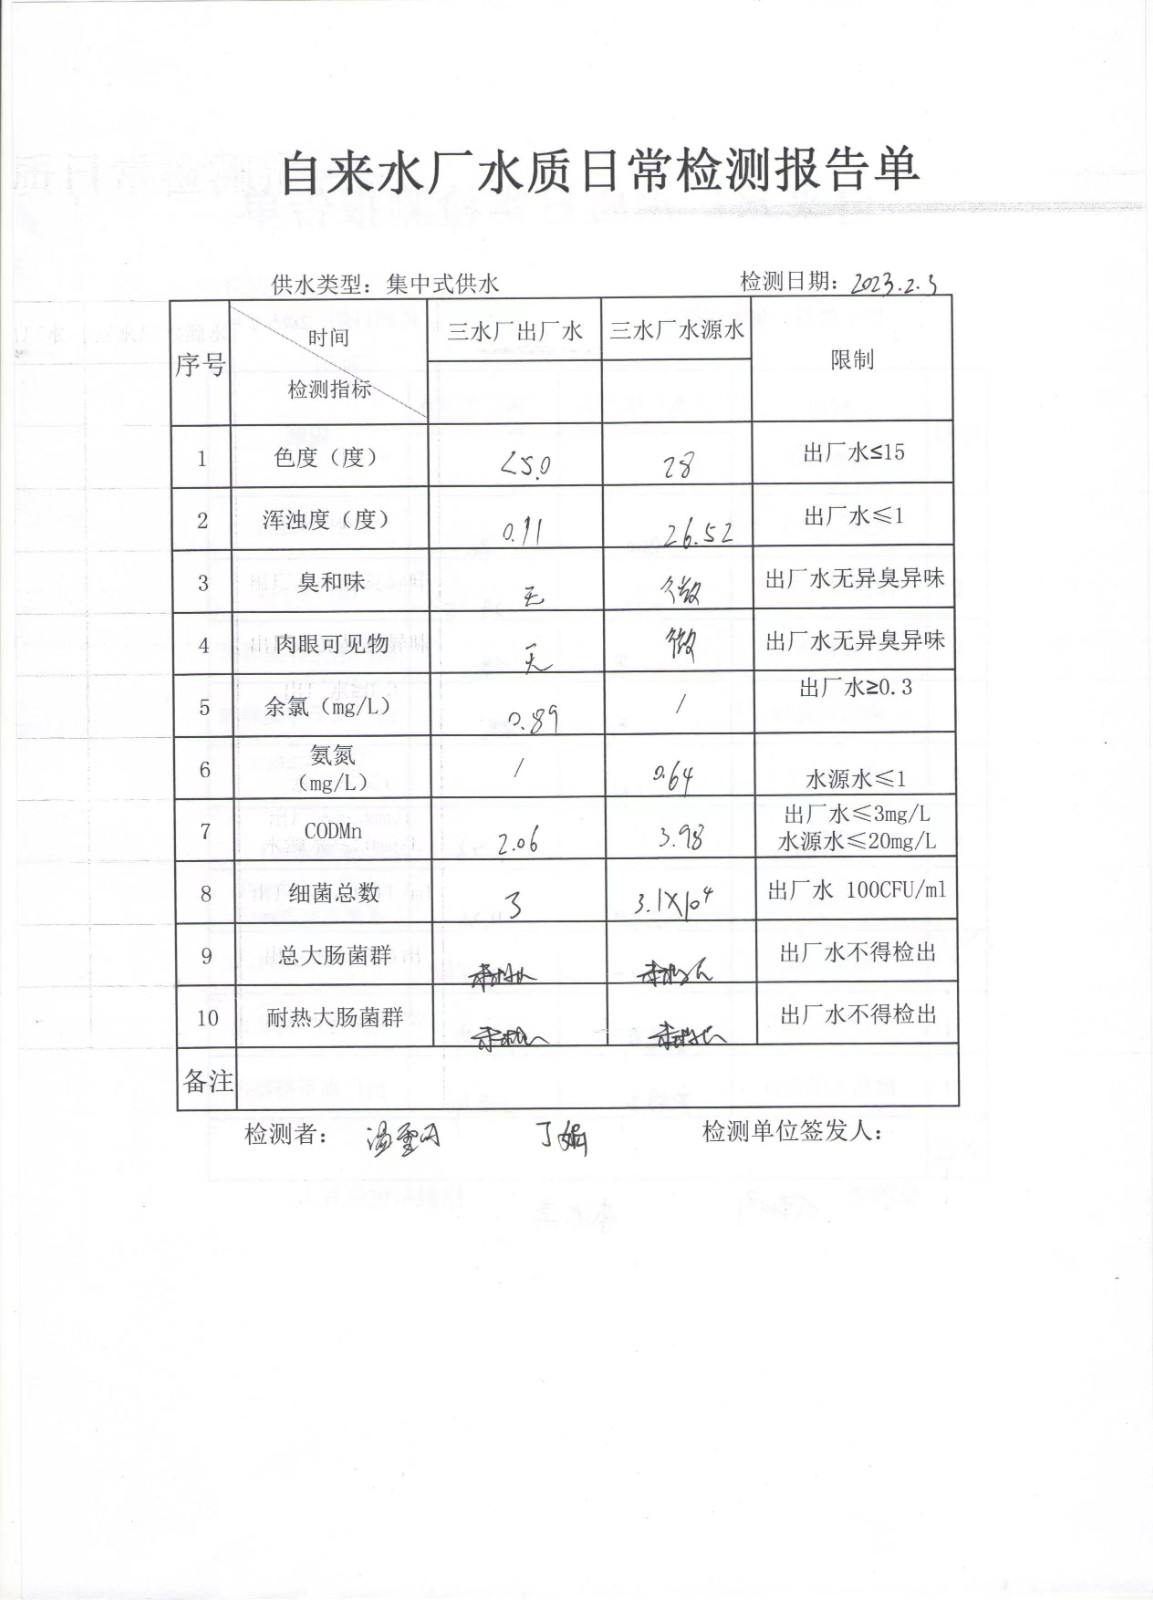 自来水厂水质日常检测报告单
供水类型：集中式供水 检测日期：2023.2.3
序号 时间 检测指标 三水厂出厂水 三水厂水源水 限制
1 色度（度） <5.0 28 出厂水≤15
2 浑浊度（度） 0.11 26.52 出厂水≤1
3 臭和味 无 微 出厂水无异臭异味
4 肉眼可见物 无 微 出厂水无异臭异味
5 余氯（mg/L） 0.89 / 出厂水≥0.3
6 氨氮（mg/L） / 0.64 水源水≤1
7 CODMn 2.06 3.98 出厂水≤3mg/L
水源水≤20mg/L
8 细菌总数 3 3.1X10⁴ 出厂水 100CFU/ml
9 总大肠菌群 未检出 出厂水不得检出
10 耐热大肠菌群 未检出 出厂水不得检出
备注
检测者： 丁娟 检测单位签发人：